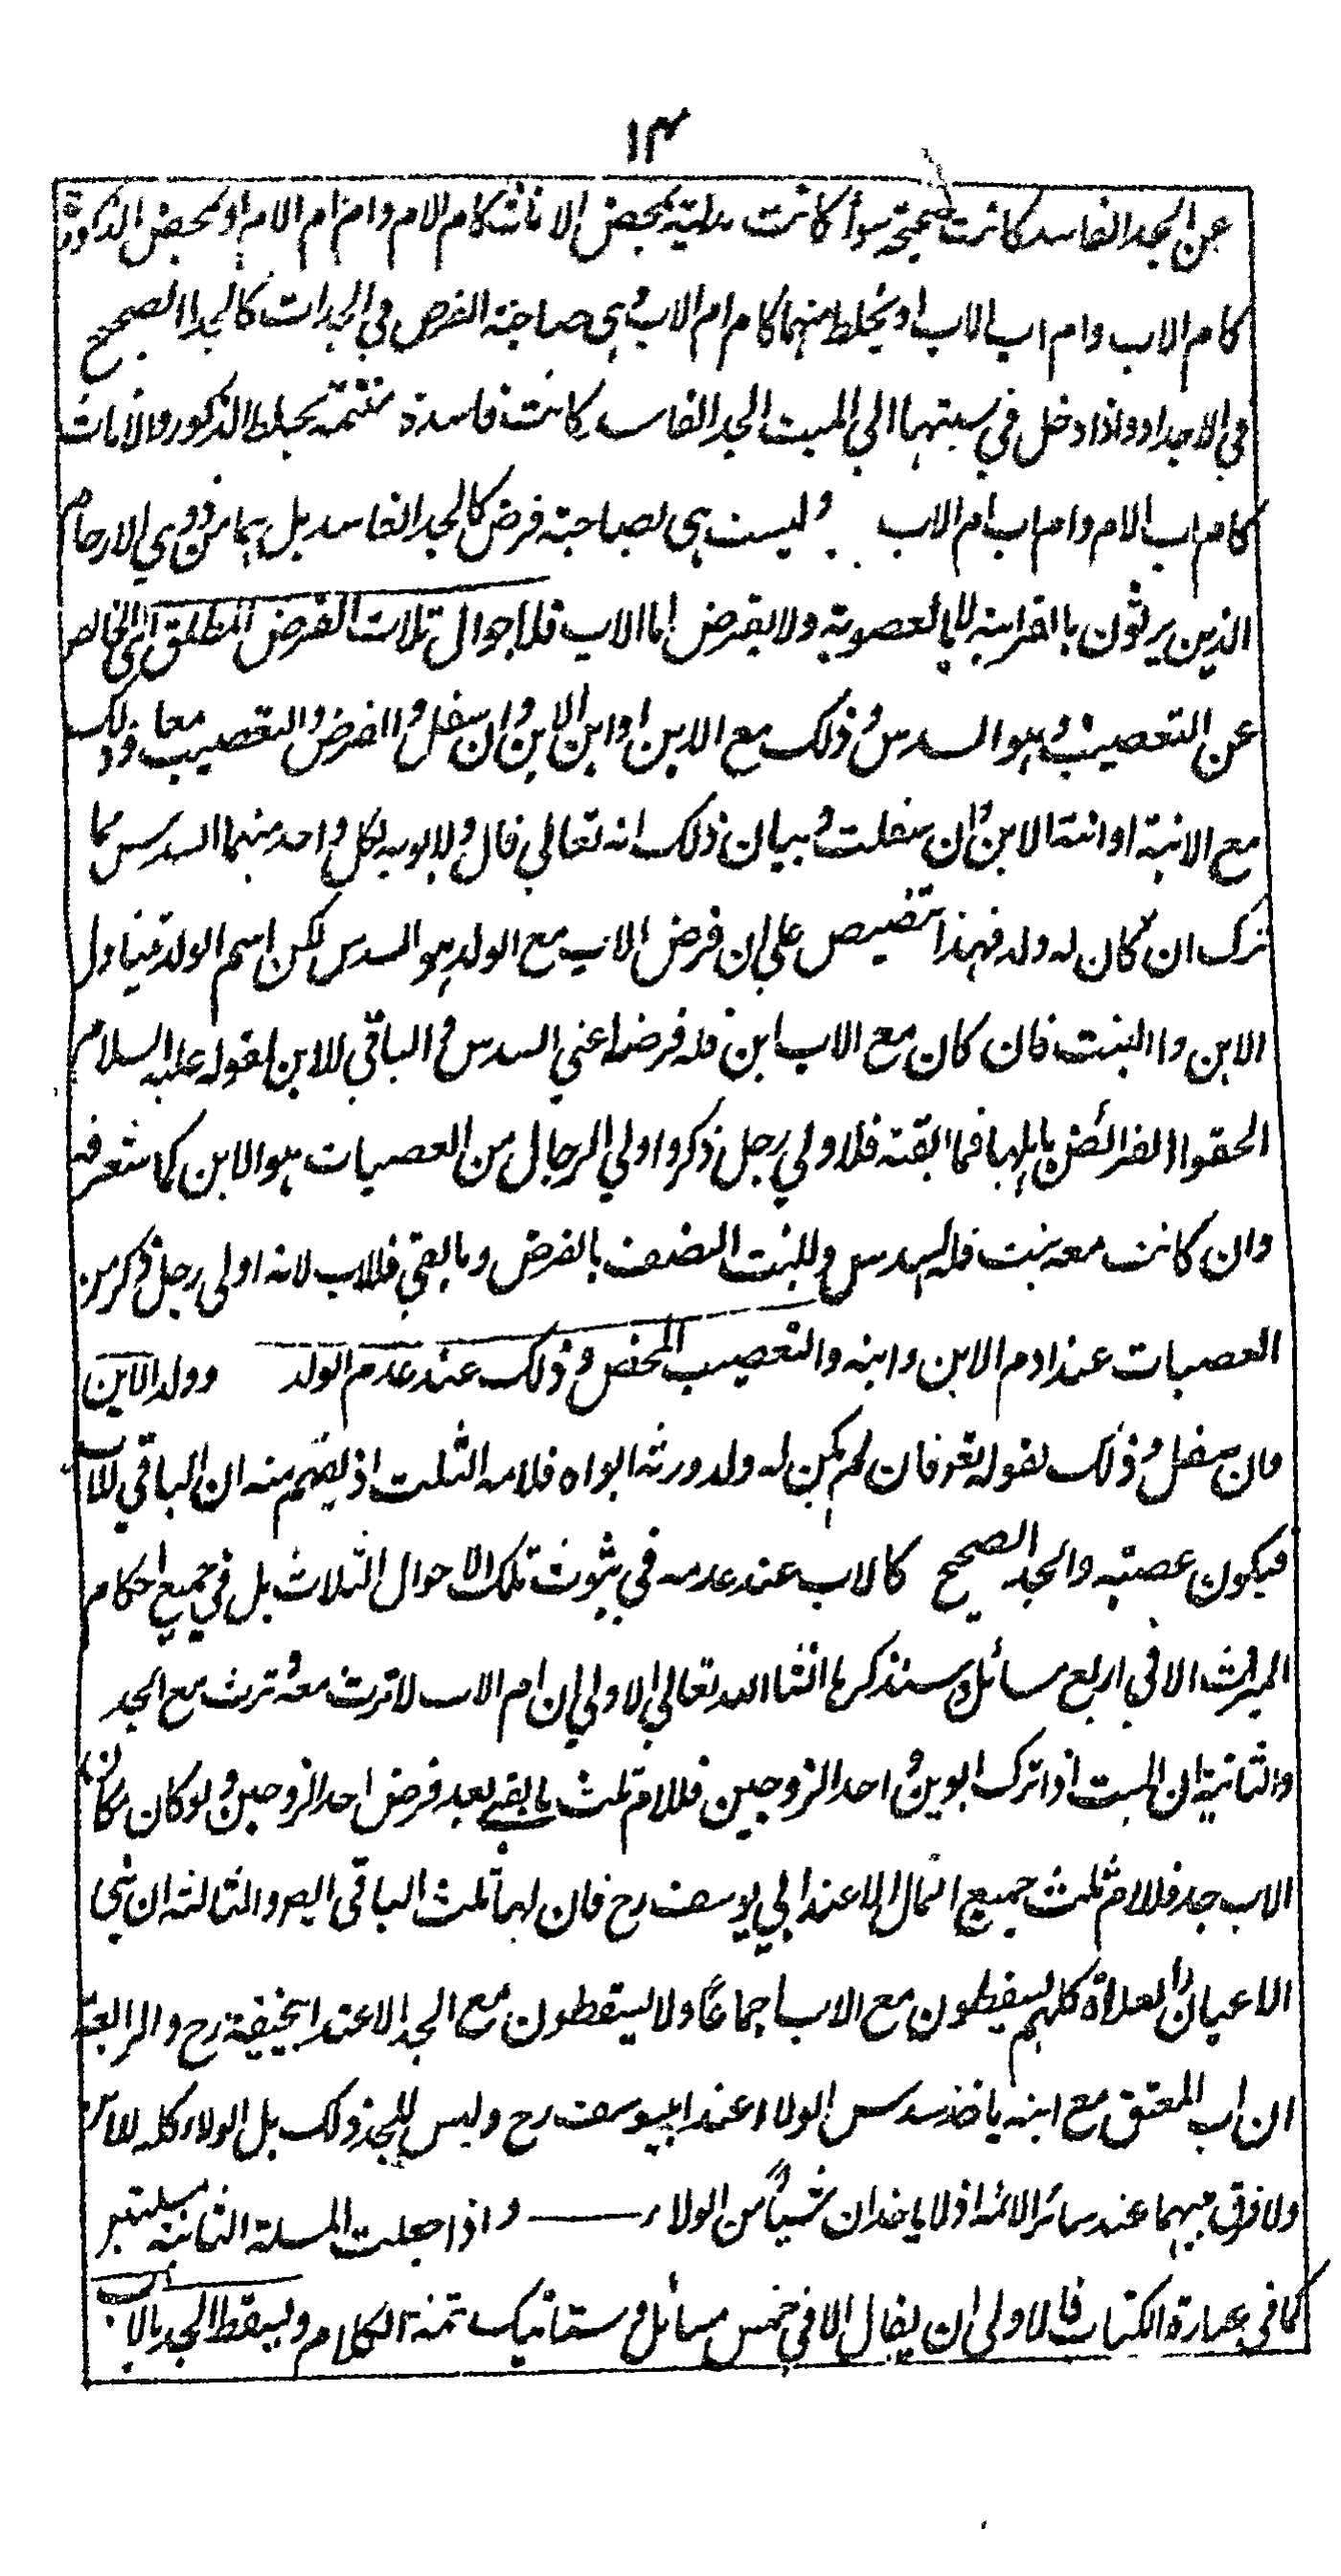 ١٣
عن الجد الفاسد كانت صحيحة سوأ كانت مدلية بمحض الاناث كام الام وام ام الام او بمحض الذكورة
كام الاب وام اب الاب او بخلط منهما كام ام الاب وهى صاحبة الفرض في الجدات كالجد الصحيح
في الاجداد واذا دخل في سبتهما الي الميت الجد الفاسد كانت فاسدة بخلط الذكور والاناث
كام اب الام وام اب ام الاب وليست هى بصاحبة فرض كالجد الفاسد بل هما من ذوي الارحام
الذين يرثون باالقرابة لا بالعصوبة ولا بفرض اما الاب فلا احوال ثلاث الفرض المطلق اى الخالص
عن التعصيب وهو السدس وذلك مع الابن او ابن الابن وان سفل واالفرض والتعصيب معا وذلك
مع الابنة او ابنة الابن وان سفلت وبيان ذلك انه تعالي قال ولابويه لكل واحد منهما السدس مما
ترك ان كان له ولد فهذا تنصيص علي ان فرض الاب مع الولد هو السدس لكن اسم الولد يتناول
الابن واالبنت فان كان مع الاب ابن فله فرضه اعني السدس والباقي للابن لقوله عليه السلام
الحقوا الفرائض باهلها فما ابقته فلاولي رجل ذكر واولي الرجال من العصبات هو الابن كما ستعرفه
وان كانت معه بنت فله السدس وللبنت النصف بالفرض وما بقي فللاب لانه اولى رجل ذكر من
العصبات عند ادم الابن وابنه والتعصيب المحض وذلك عند عدم الولد وولد الابن
وان سفل وذلك لقوله تعر فان لم يكن له ولد وورثه ابواه فلامه الثلث اذ يفهم منه ان الباقي للاب
فيكون عصبته والجد الصحيح كالاب عند عدمه في ثبوت تلك الاحوال الثلاث بل في جميع احكام
الميراث الا في اربع مسائل سنذكرها انشا الله تعالي الاولي ان ام الاب لا ترث معه وترث مع الجد
والثانية ان الميت اذا ترك ابوين واحد الزوجين فللام ثلث ما بقي بعد فرض احد الزوجين ولو كان مكان
الاب جد فللام ثلث جميع المال الا عند ابي يوسف رح فان لها ثلث الباقى ايضا والثالثة ان بني
الاعيان والعلاة كلهم يسقطون مع الاب اجماعا ولا يسقطون مع الجد الا عند ابيحنيفة رح والرابعة
ان اب المعتق مع ابنه ياخذ سدس الولاء عند ابيوسف رح وليس للجد ذلك بل الولاء كله للابن
ولا فرق بينهما عند سائر الائمة اذ لا ياخذان شيأ من الولاء واذا جعلت المسلة الثانية مسلتين
كما في عبارة الكتاب فالاولى ان يقال الا في خمس مسائل وستاتيك تمنة الكلام ويسقط الجد بالاب